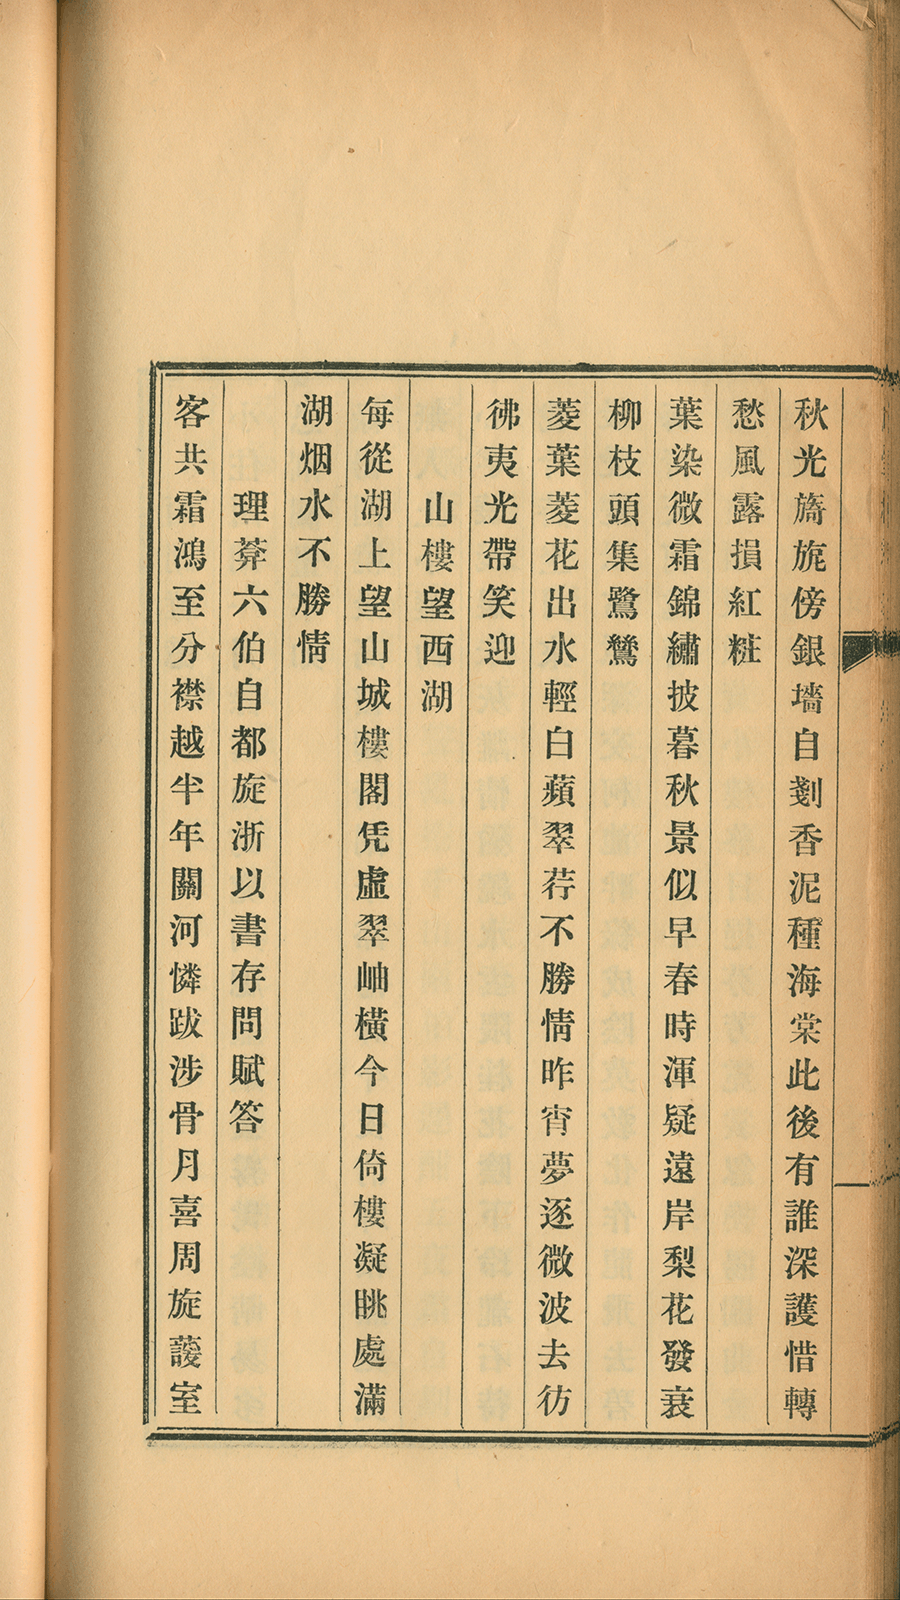 秋光旖旎傍銀墻自剗香泥種海棠此後有誰深護惜轉
愁風露損紅粧
葉染微霜錦繡披暮秋景似早春時渾疑遠岸梨花發衰
柳枝頭集鷺鷥
菱葉菱花出水輕白蘋翠荇不勝情昨宵夢逐微波去彷
彿夷光帶笑迎
山樓望西湖
每從湖上望山城樓閣凭虛翠岫橫今日倚樓凝眺處滿
湖烟水不勝情
理葊六伯自都旋浙以書存問賦答
客共霜鴻至分襟越半年關河憐跋涉骨月喜周旋蘐室